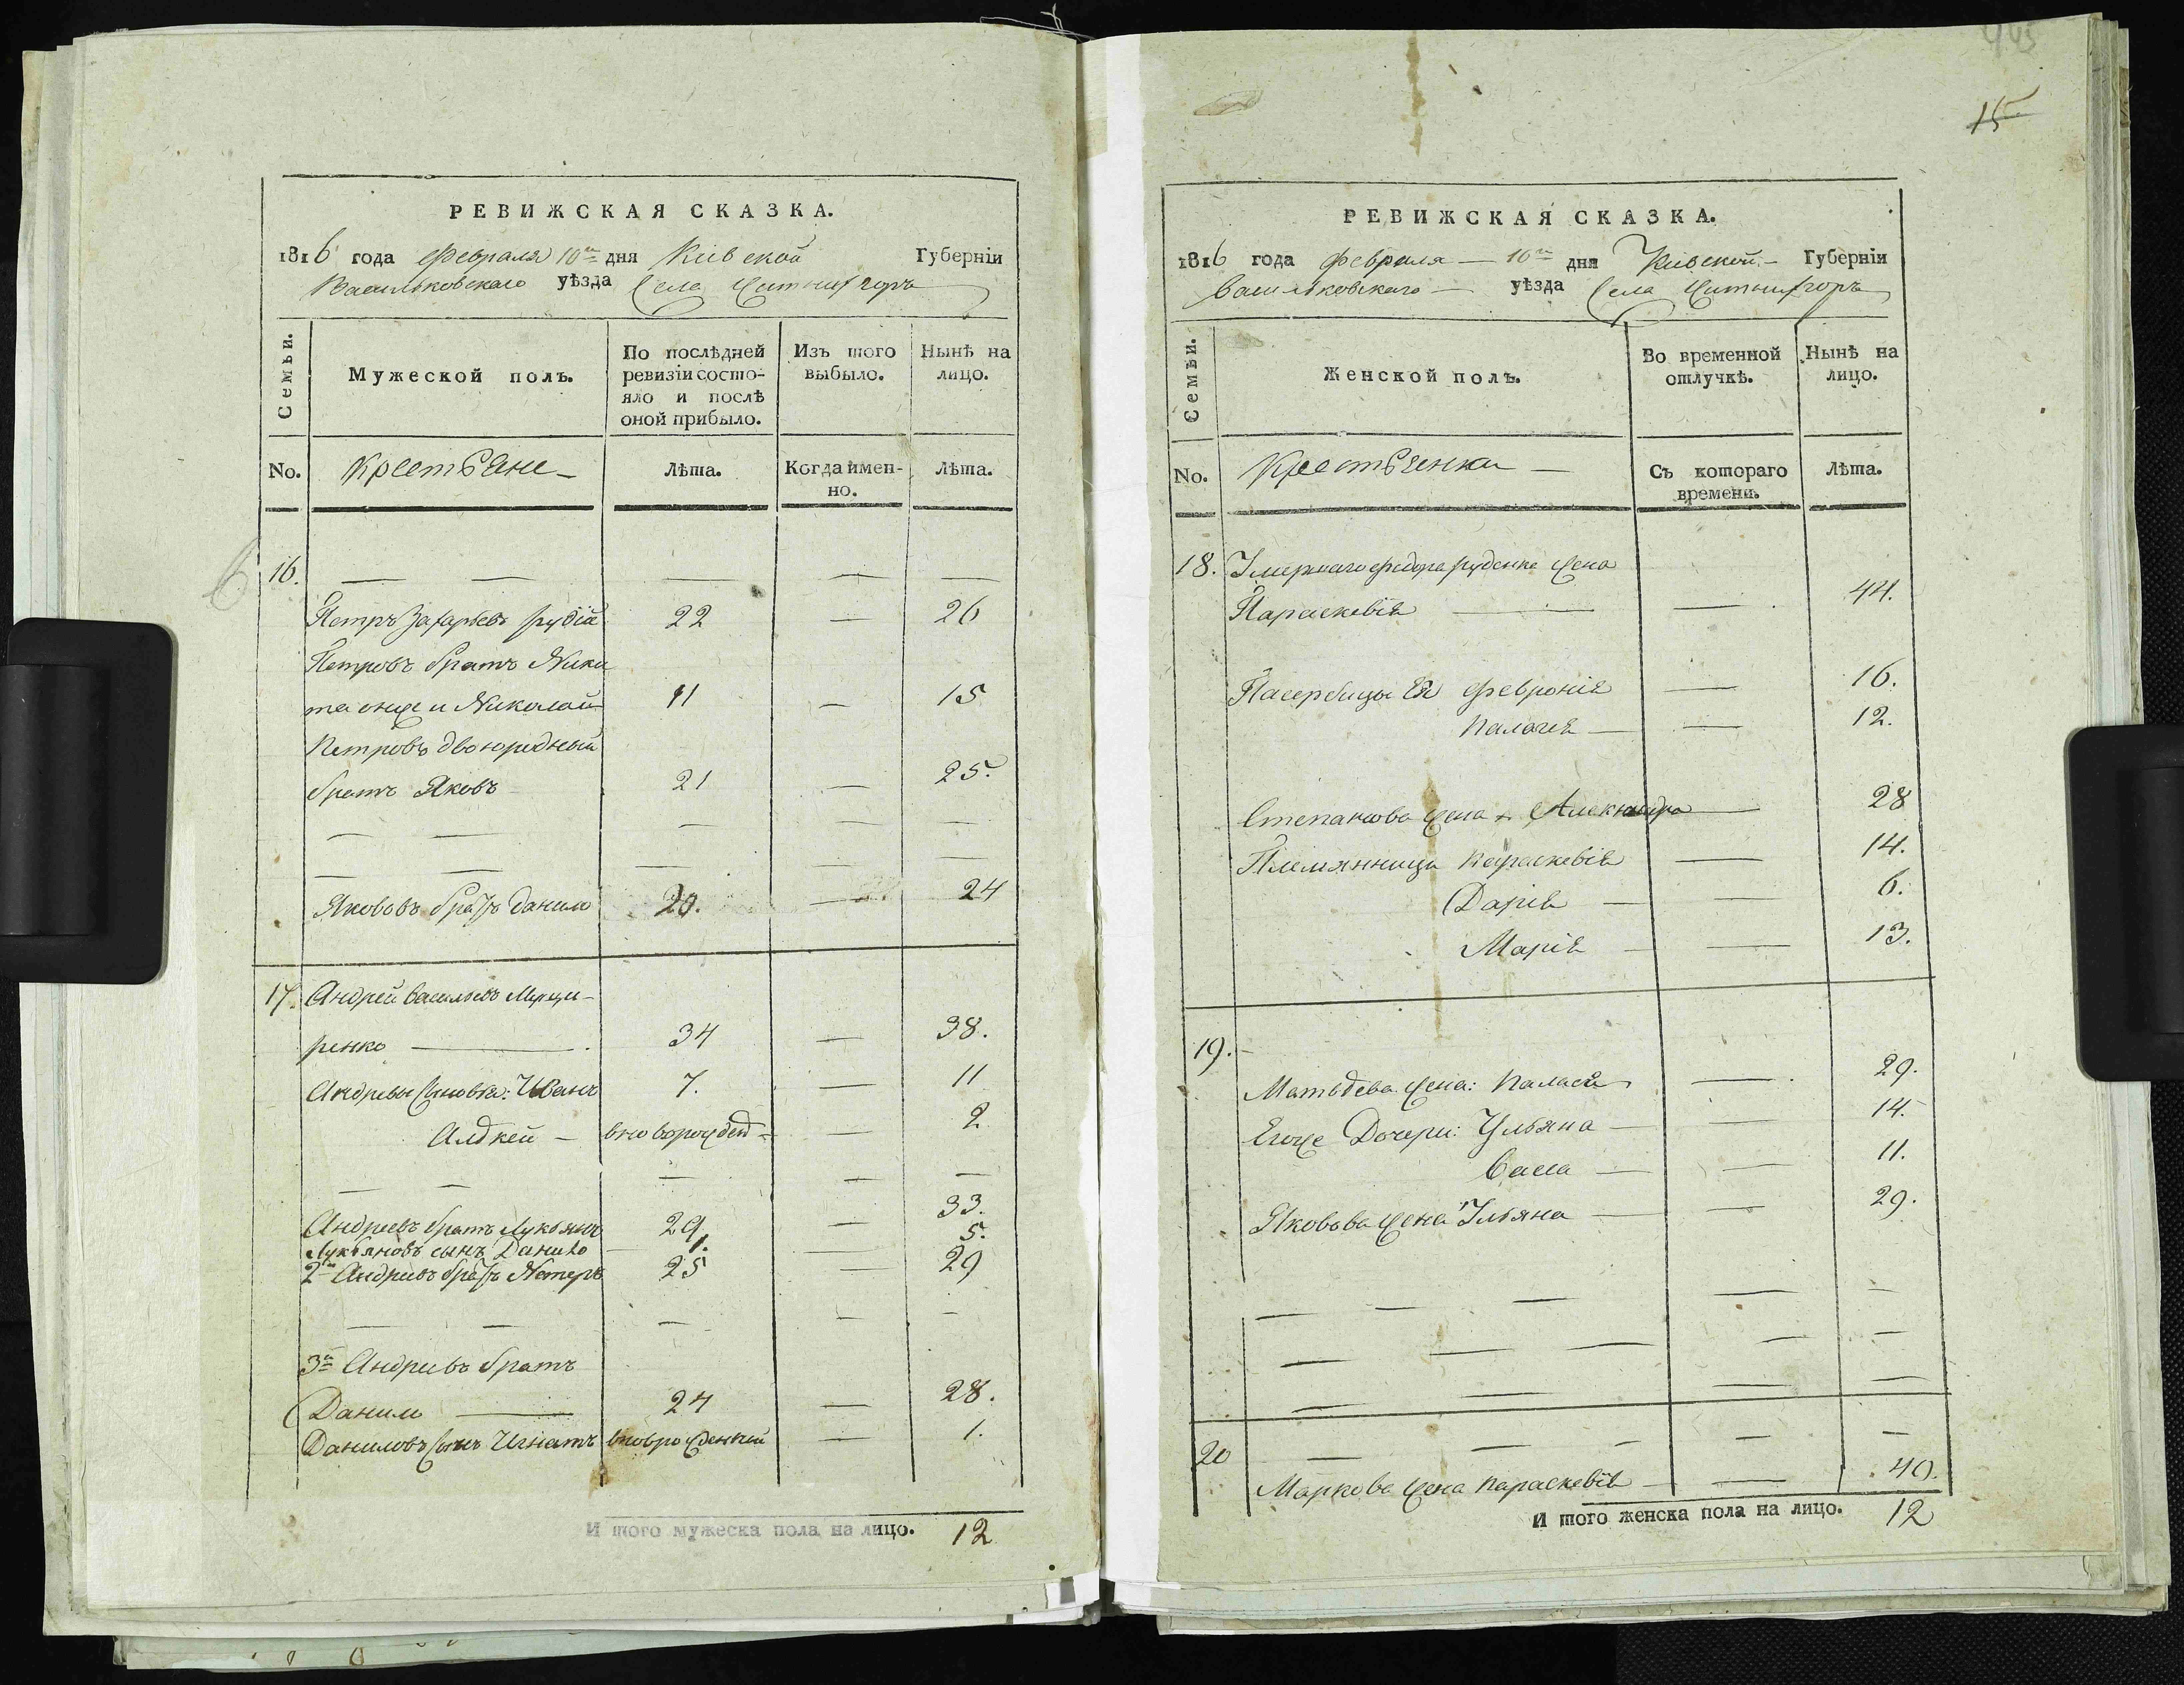 РЕВИЖСКАЯ СКАЗКА.
1816 года февраля 10го дня Киевской Губерніи
Васильковскаго уѣзда Села
Семьи.
Мужеской полъ.
По послѣдней ревизіи состояло и послѣ оной прибыло.
Изъ того выбыло.
Нынѣ на лицо.
No. Крестьяне
Лѣта.
Когда именно.
Лѣта.
16. — — — — —
Петръ Захарьевъ Рудій 22 — 26
Петровъ братъ Ники
та онже и Николай 11 — 15
Петровъ двоюродный
братъ Яковъ 21 — 25.
— — — — —
— — — — —
Яковозъ братъ Данило 20. — 24
17. Андрей Васильевъ
ренко — 34 — 38.
Андреевы сыновья: Иванъ 7. — 11
Алдкей — вноворожден — 2
— — — — —
Андреевъ братъ Лукьянъ 29. — 33.
Лукьяновъ сынъ Данило 1. 5.
2й Андреевъ братъ Нетеръ 25 — 29
— — — — —
3й Андреевъ братъ
Данило — 24 — 28.
Даниловъ сынъ Игнатъ вноврожденный — 1.
И того мужеска пола на лицо. 12
15
РЕВИЖСКАЯ СКАЗКА.
1816 года февраля — 10го дня Киевской — Губерніи
Васильковскаго — уѣзда Села
Семьи.
Женской полъ.
Во временной отлучкѣ.
Нынѣ на лицо.
No. Крестьянки —
Съ котораго времени.
Лѣта.
18. Умершаго Федора Руденка жена
Параскевія — — 44.
Пасербицы Ея Февронія — 16.
Палагея — — 12.
Степанова жена Александра — 28
Племянницы Параскевія — 14.
Дарія — — 6.
Марія — — 13.
19. —
Матвѣева жена: Паласея — 29.
Егоже Дочери: Ульяна — — 14.
Васса — — 11.
Яковова жена Ульяна — — 29.
— — — — —
— — — — —
— — — —
20 — — — — —
Маркова жена Параскевія — — 40.
И того женска пола на лицо. 12